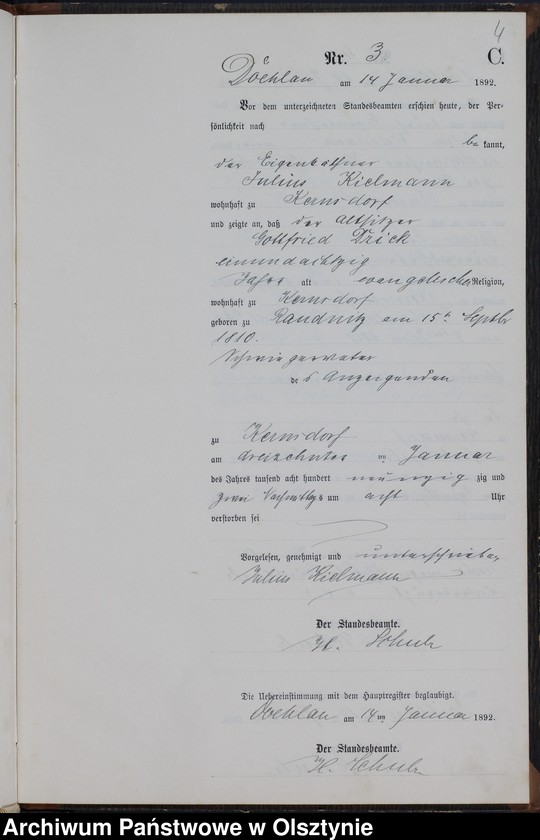 4
Nr. 3. C.
Döhlau am 14 Januar 1892.
Vor dem unterzeichneten Standesbeamten erschien heute, der Per-
sönlichkeit nach
be kannt,
der Eigenkäthner
Julius Kielmann
wohnhaft zu Kernsdorf
und zeigte an, daß der Altsitzer
Gottfried Dzick
einundachtzig
Jahre alt evangelischer Religion,
wohnhaft zu Kernsdorf
geboren zu Raudnitz am 15ten Septbr
1810.
Schwiegervater
des Anzeigenden
zu Kernsdorf
am dreizehnten ten Januar
des Jahres tausend acht hundert neunzig zig und
zwei Nachmittags um acht Uhr
verstorben sei
Vorgelesen, genehmigt und unterschrieben
Julius Kielmann
Der Standesbeamte.
H. Schulz
Die Uebereinstimmung mit dem Hauptregister beglaubigt.
Döhlau am 14ten Januar 1892.
Der Standesbeamte.
H. Schulz
Archiwum Państwowe w Olsztynie